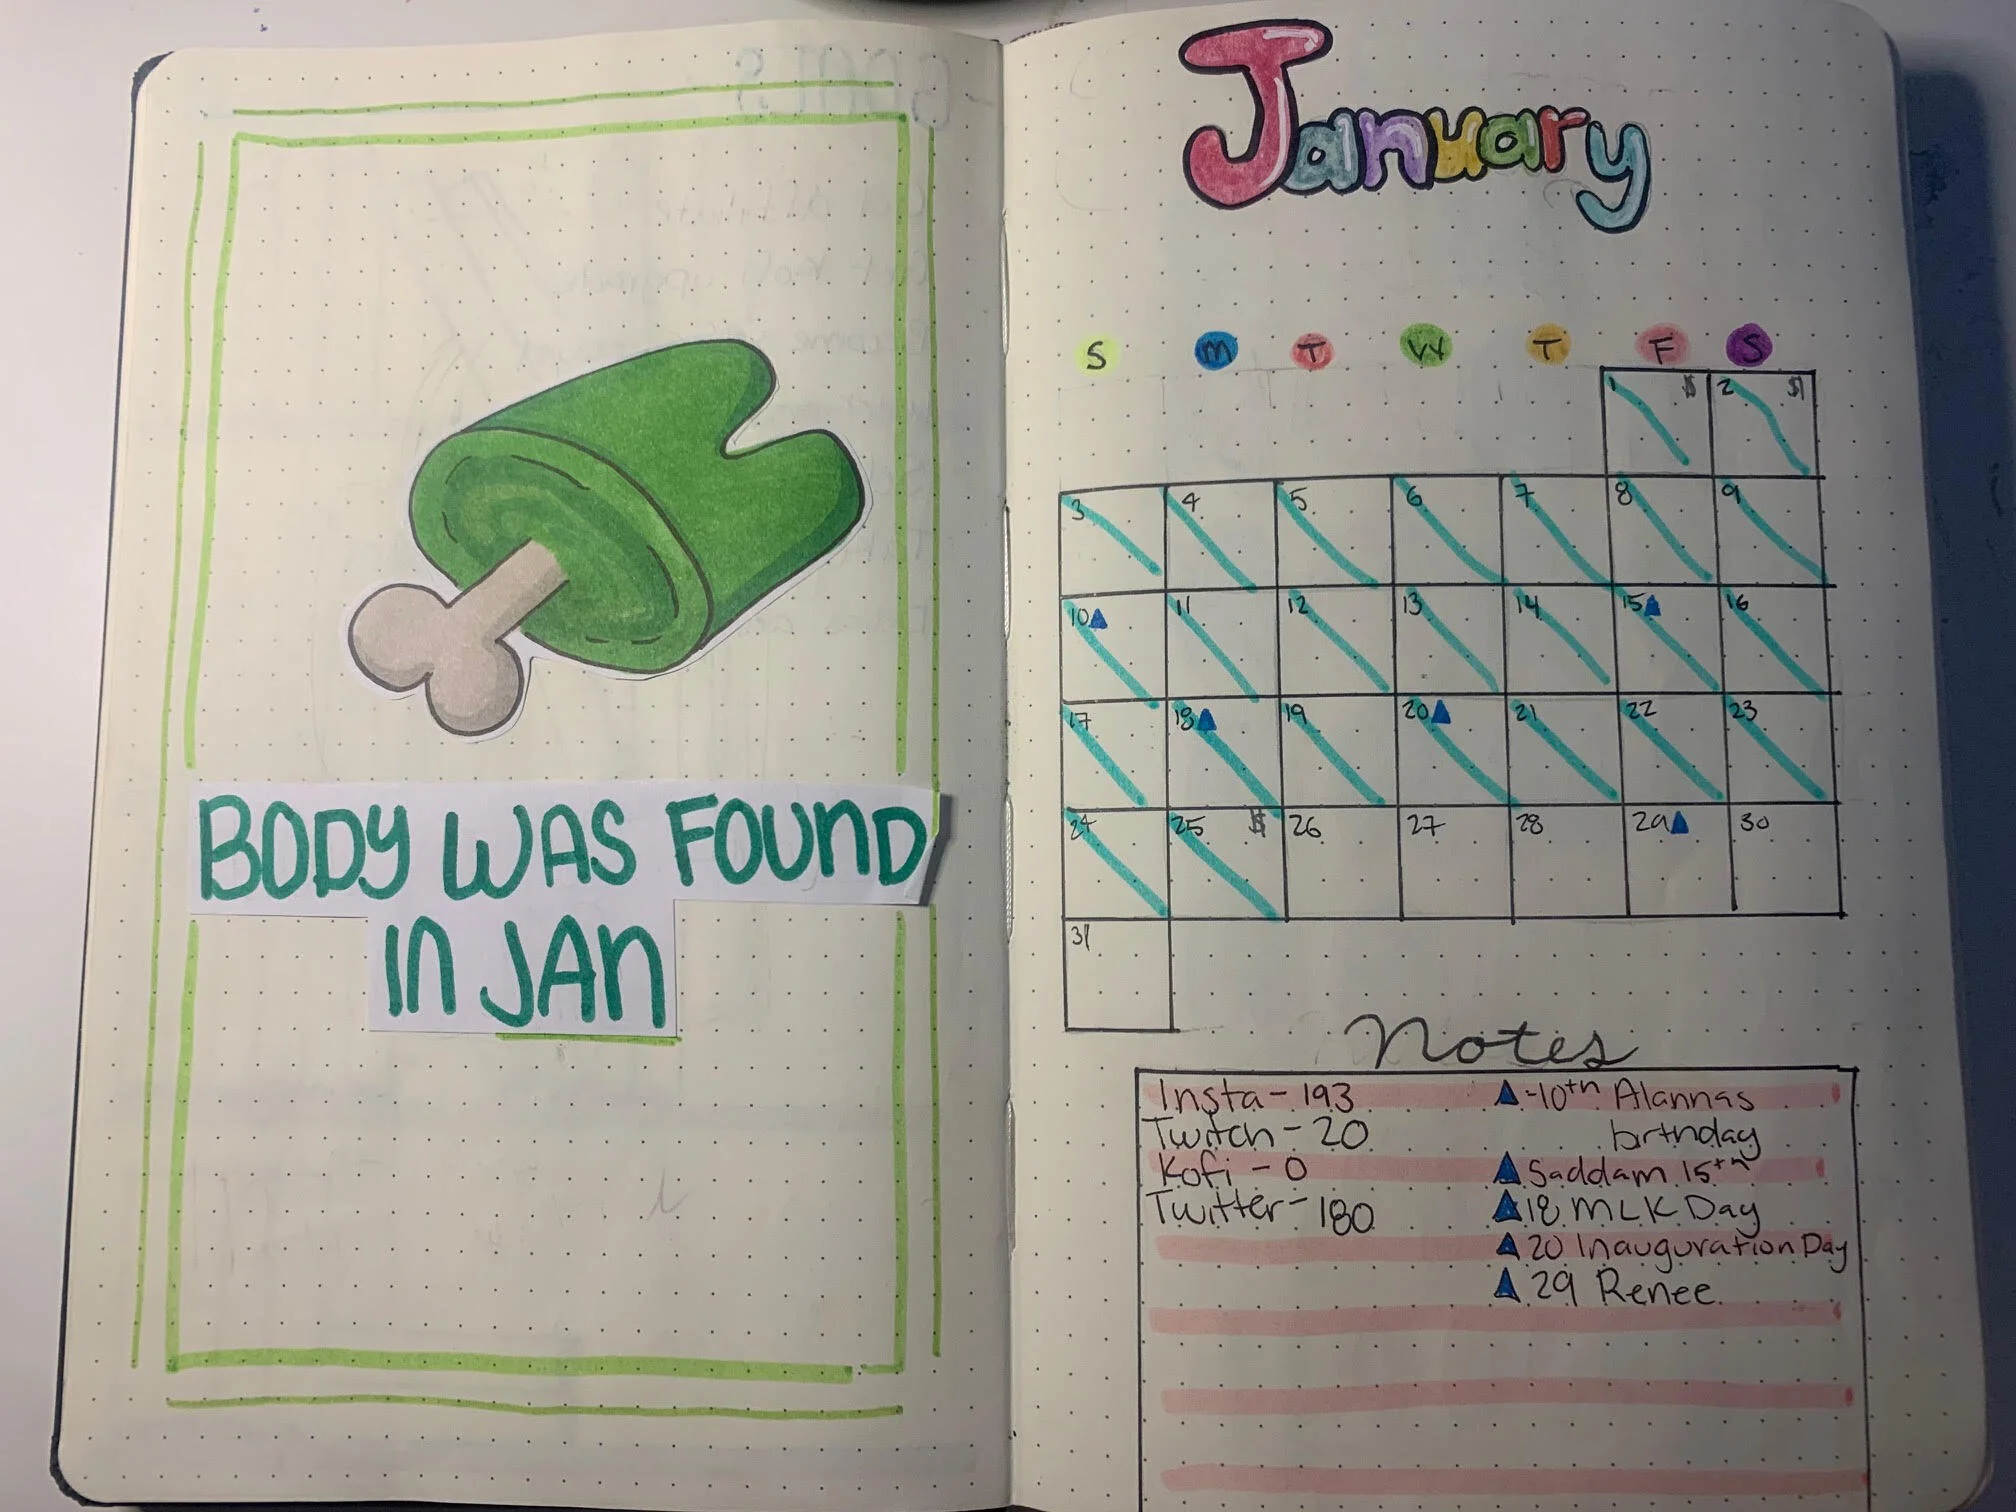 BODY WAS FOUND
IN JAN
January
S M T W T F S
1 $ 2 $
3 4 5 6 7 8 9
10 11 12 13 14 15 16
17 18 19 20 21 22 23
24 25 $ 26 27 28 29 30
31
Notes
Insta - 193
Twitch - 20
Kofi - 0
Twitter - 180
-10th Alannas
birthday
Saddam 15th
18 MLK Day
20 Inauguration Day
29 Renee